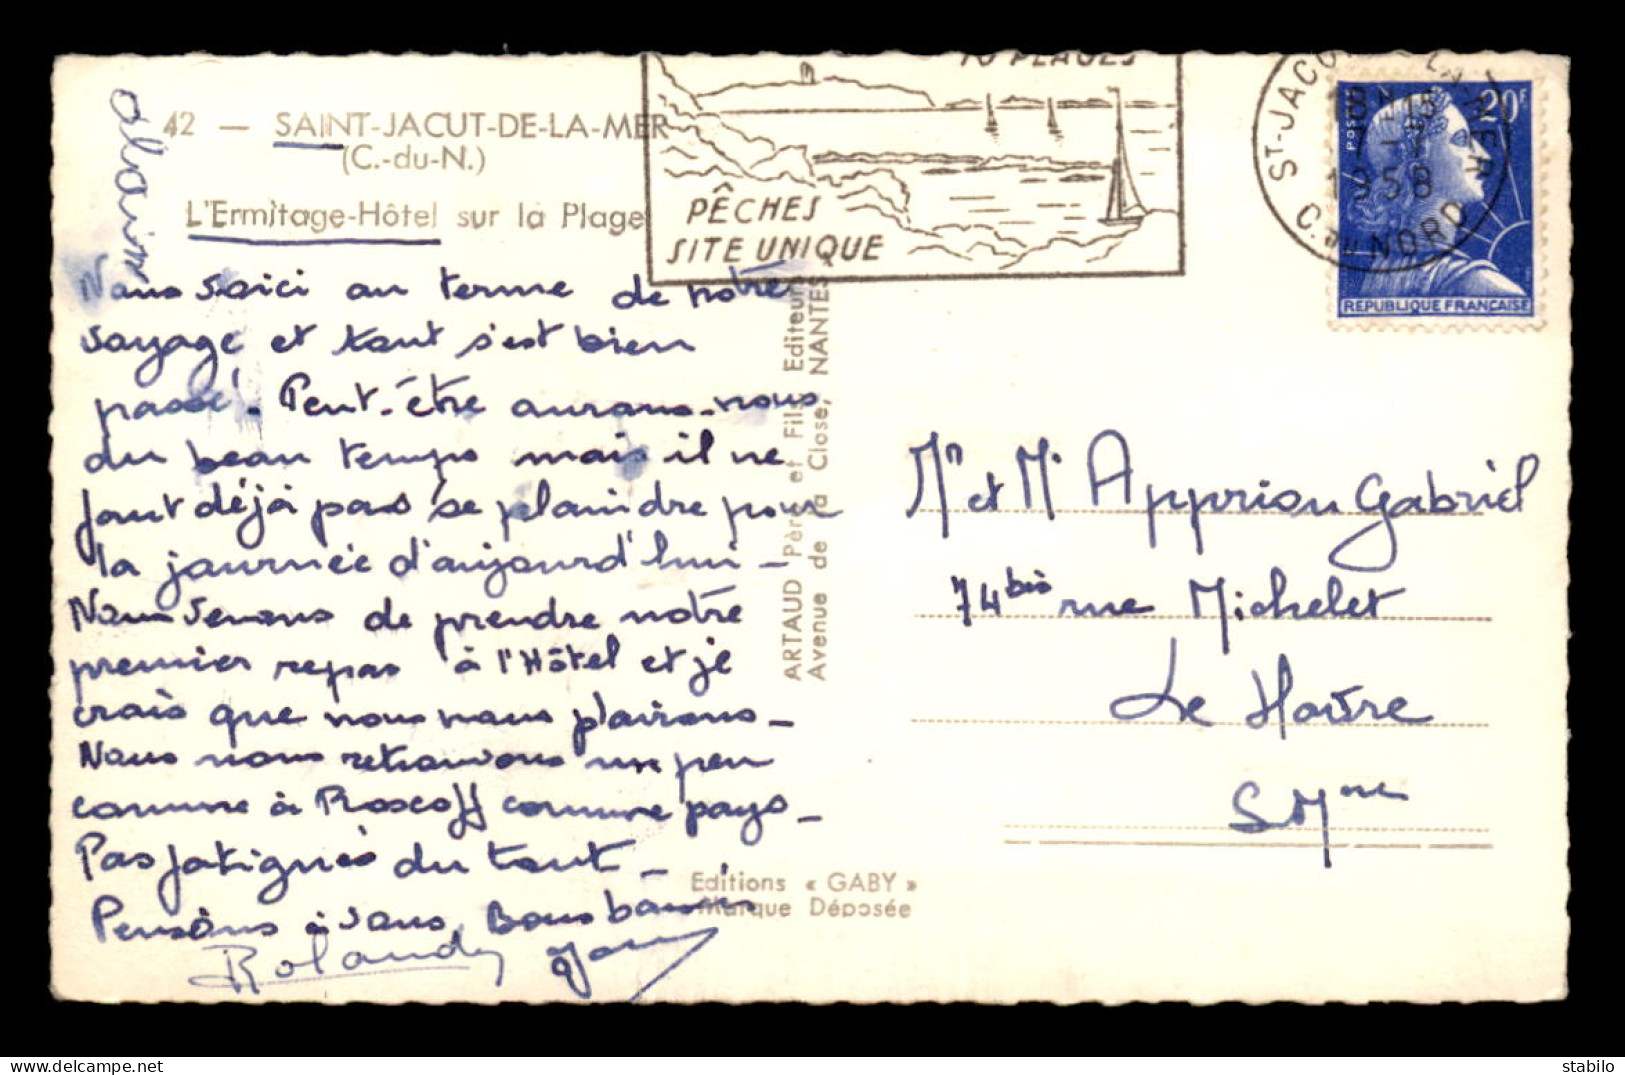 42 — SAINT-JACUT-DE-LA-MER
(C.-du-N.)
L'Ermitage-Hôtel sur la Plage
alain
Nous voici au terme de notre
voyage et tout s'est bien
passé. Peut-être aurons-nous
du beau temps mais il ne
faut déjà pas se plaindre pour
la journée d'aujourd'hui -
Nous venons de prendre notre
premier repas à l'Hôtel et je
crois que nous nous plairons -
Nous nous retrouvons un peu
comme à Roscoff comme pays -
Pas fatigués du tout -
Pensons à vous, Bons baisers
Rolande
10 PLAGES
PÊCHES
SITE UNIQUE
ST-JACUT DE LA MER
18 H 15
1958
C. DU NORD
POSTES
20F
REPUBLIQUE FRANÇAISE
ARTAUD Père et Fils Editeurs
Avenue de la Close, NANTES
Mr et Me Apprion Gabriel
74 bis rue Michelet
Le Havre
S. Mme
Editions « GABY »
Marque Déposée
delcampe.net
stabilo